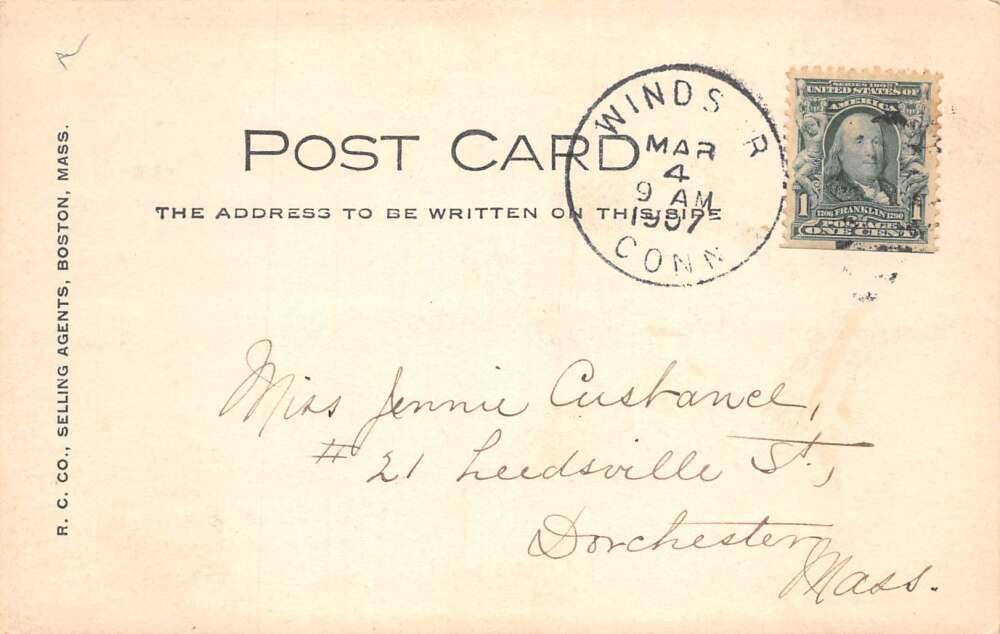 POST CARD
THE ADDRESS TO BE WRITTEN ON THIS SIDE
R. C. CO., SELLING AGENTS, BOSTON, MASS.
WINDS R
MAR
4
9 AM
1907
CONN
SERIES 1902
UNITED STATES OF
AMERICA
1 1
1706 FRANKLIN 1790
POSTAGE
ONE CENT
Miss Jennie Custance,
# 21 Leedsville St.,
Dorchester,
Mass.